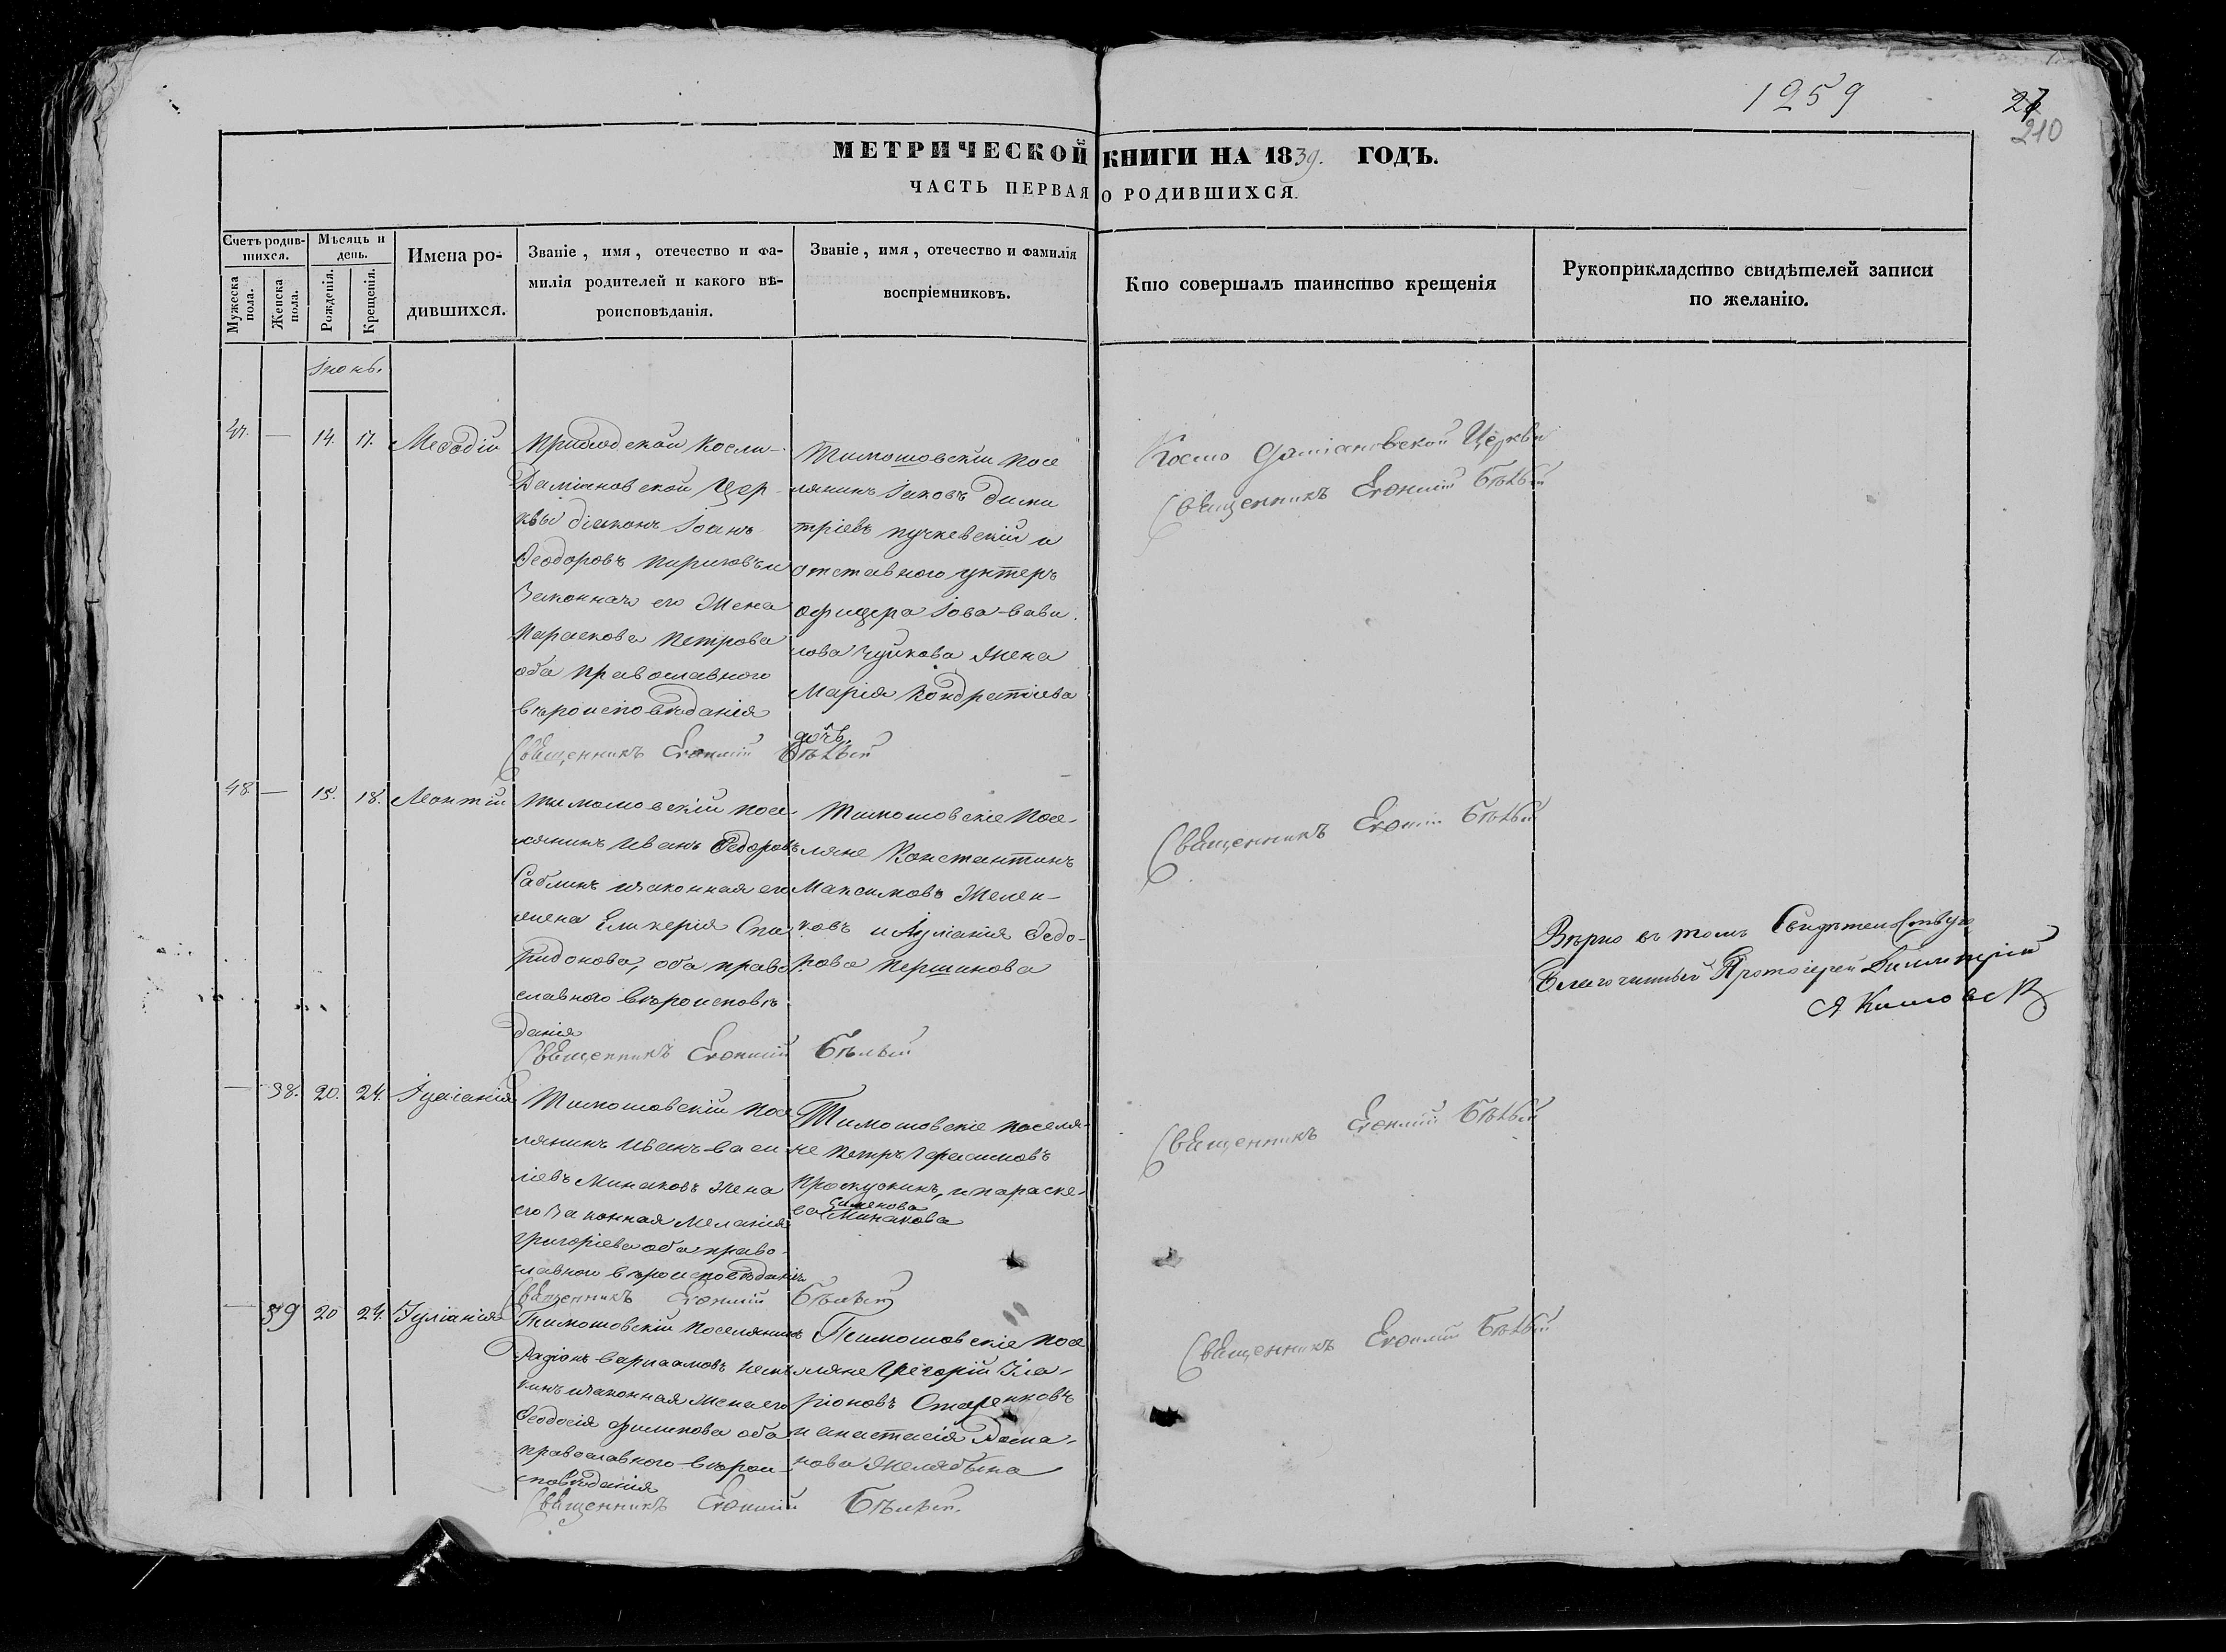 1259
27
210
МЕТРИЧЕСКОЙ КНИГИ НА 1839. ГОДЪ.
ЧАСТЬ ПЕРВАЯ О РОДИВШИХСЯ.
Счетъ родив-
шихся.
Мужеска
пола.
Женска
пола.
Мѣсяць и
день.
Рожденія.
Крещенія.
Имена ро-
дившихся.
Званіе, имя, отечество и фа-
милія родителей и какого вѣ-
роисповѣданія.
Званіе, имя, отечество и фамилія
воспріемниковъ.
Кто совершалъ таинство крещенія
Рукоприкладство свидѣтелей записи
по желанію.
Іюнь.
47. — 14. 17. Меѳодій
Приходской Косми-
Даміановской Цер
квы діаконъ Іоанъ
Ѳеодоровъ и
Законная его Жена
Параскева Петрова
оба православного
вѣроисповѣданія
Тимошовскій посе
лянинъ Іаковъ Дими
тріевъ и
отставного унтеръ
офицера Іова Вави
лова Чуйкова Жена
Марія Кондратіева
дочь.
Священникъ Бѣлый
Космо Даміановской Церкви
Священникъ Бѣлый
48. — 15. 18. Леонтій
Тимошовскій посе-
лянинъ Иванъ Федоровъ
Саблинъ изаконная его
жена Гликерія Спи
ридонова, оба право
славного вѣроисповѣ
данія
Тимошовскіе посе-
ляне Константинъ
Максимовъ
и Іуліанія Федо-
рова Першикова
Священникъ Бѣлый
Священникъ Бѣлый
Вѣрно въ томъ Свидѣтелствую
Благочинный Протоіерей Димитрій
— 38. 20. 24. Іуліанія
Тимошовскій посе
лянинъ Иванъ Васи
ліевъ Минаковъ Жена
его Законная Меланія
Григоріева оба право-
славного вѣроисповѣданія
Тимошовскіе поселя-
не Петръ Герасимовъ
Проскуринъ, и Параске-
ва Симонова
Минакова
Священникъ Бѣлый
Священникъ Бѣлый
— 39 20 24. Іуліанія
Тимошовскій поселянинъ
Радіонъ Варлаамовъ
изаконная Жена его
Ѳеодосія Филипова оба
православного вѣрои-
сповѣданія
Тимошовскіе посе
ляне Григорій Ила-
ріоновъ Старенковъ
и анастасія Рома-
нова Желябына
Священникъ Бѣлый
Священникъ Бѣлый.